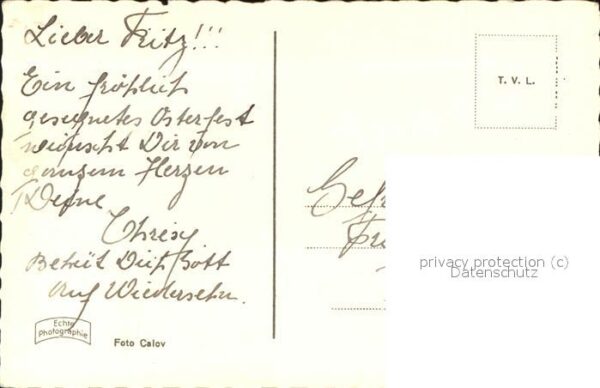 Lieber Fritz!!!
Ein fröhlich
gesegnetes Osterfest
wünscht Dir von
ganzem Herzen
Deine
Chrisy
Behüt Dich Gott
Auf Wiedersehn.
T. V. L.
Gefr
Fri
privacy protection (c)
Datenschutz
Echte
Photographie
Foto Calov